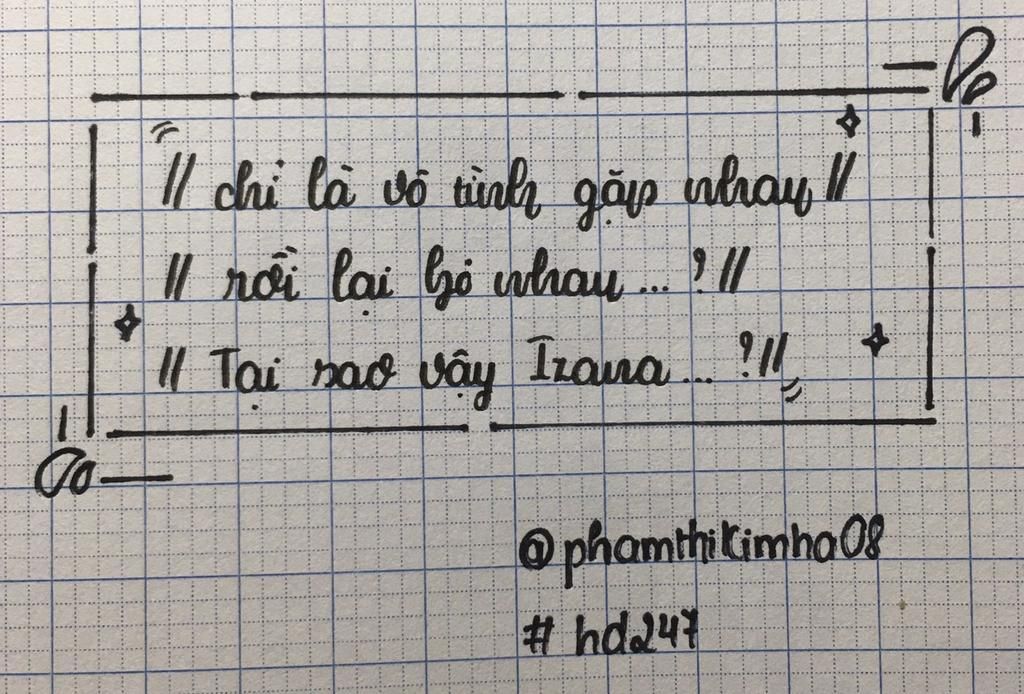 // chỉ là vô tình gặp nhau //
// rồi lại bỏ nhau... ? //
// Tại sao vậy Izana... ? //
@phamthikimha08
# hd247